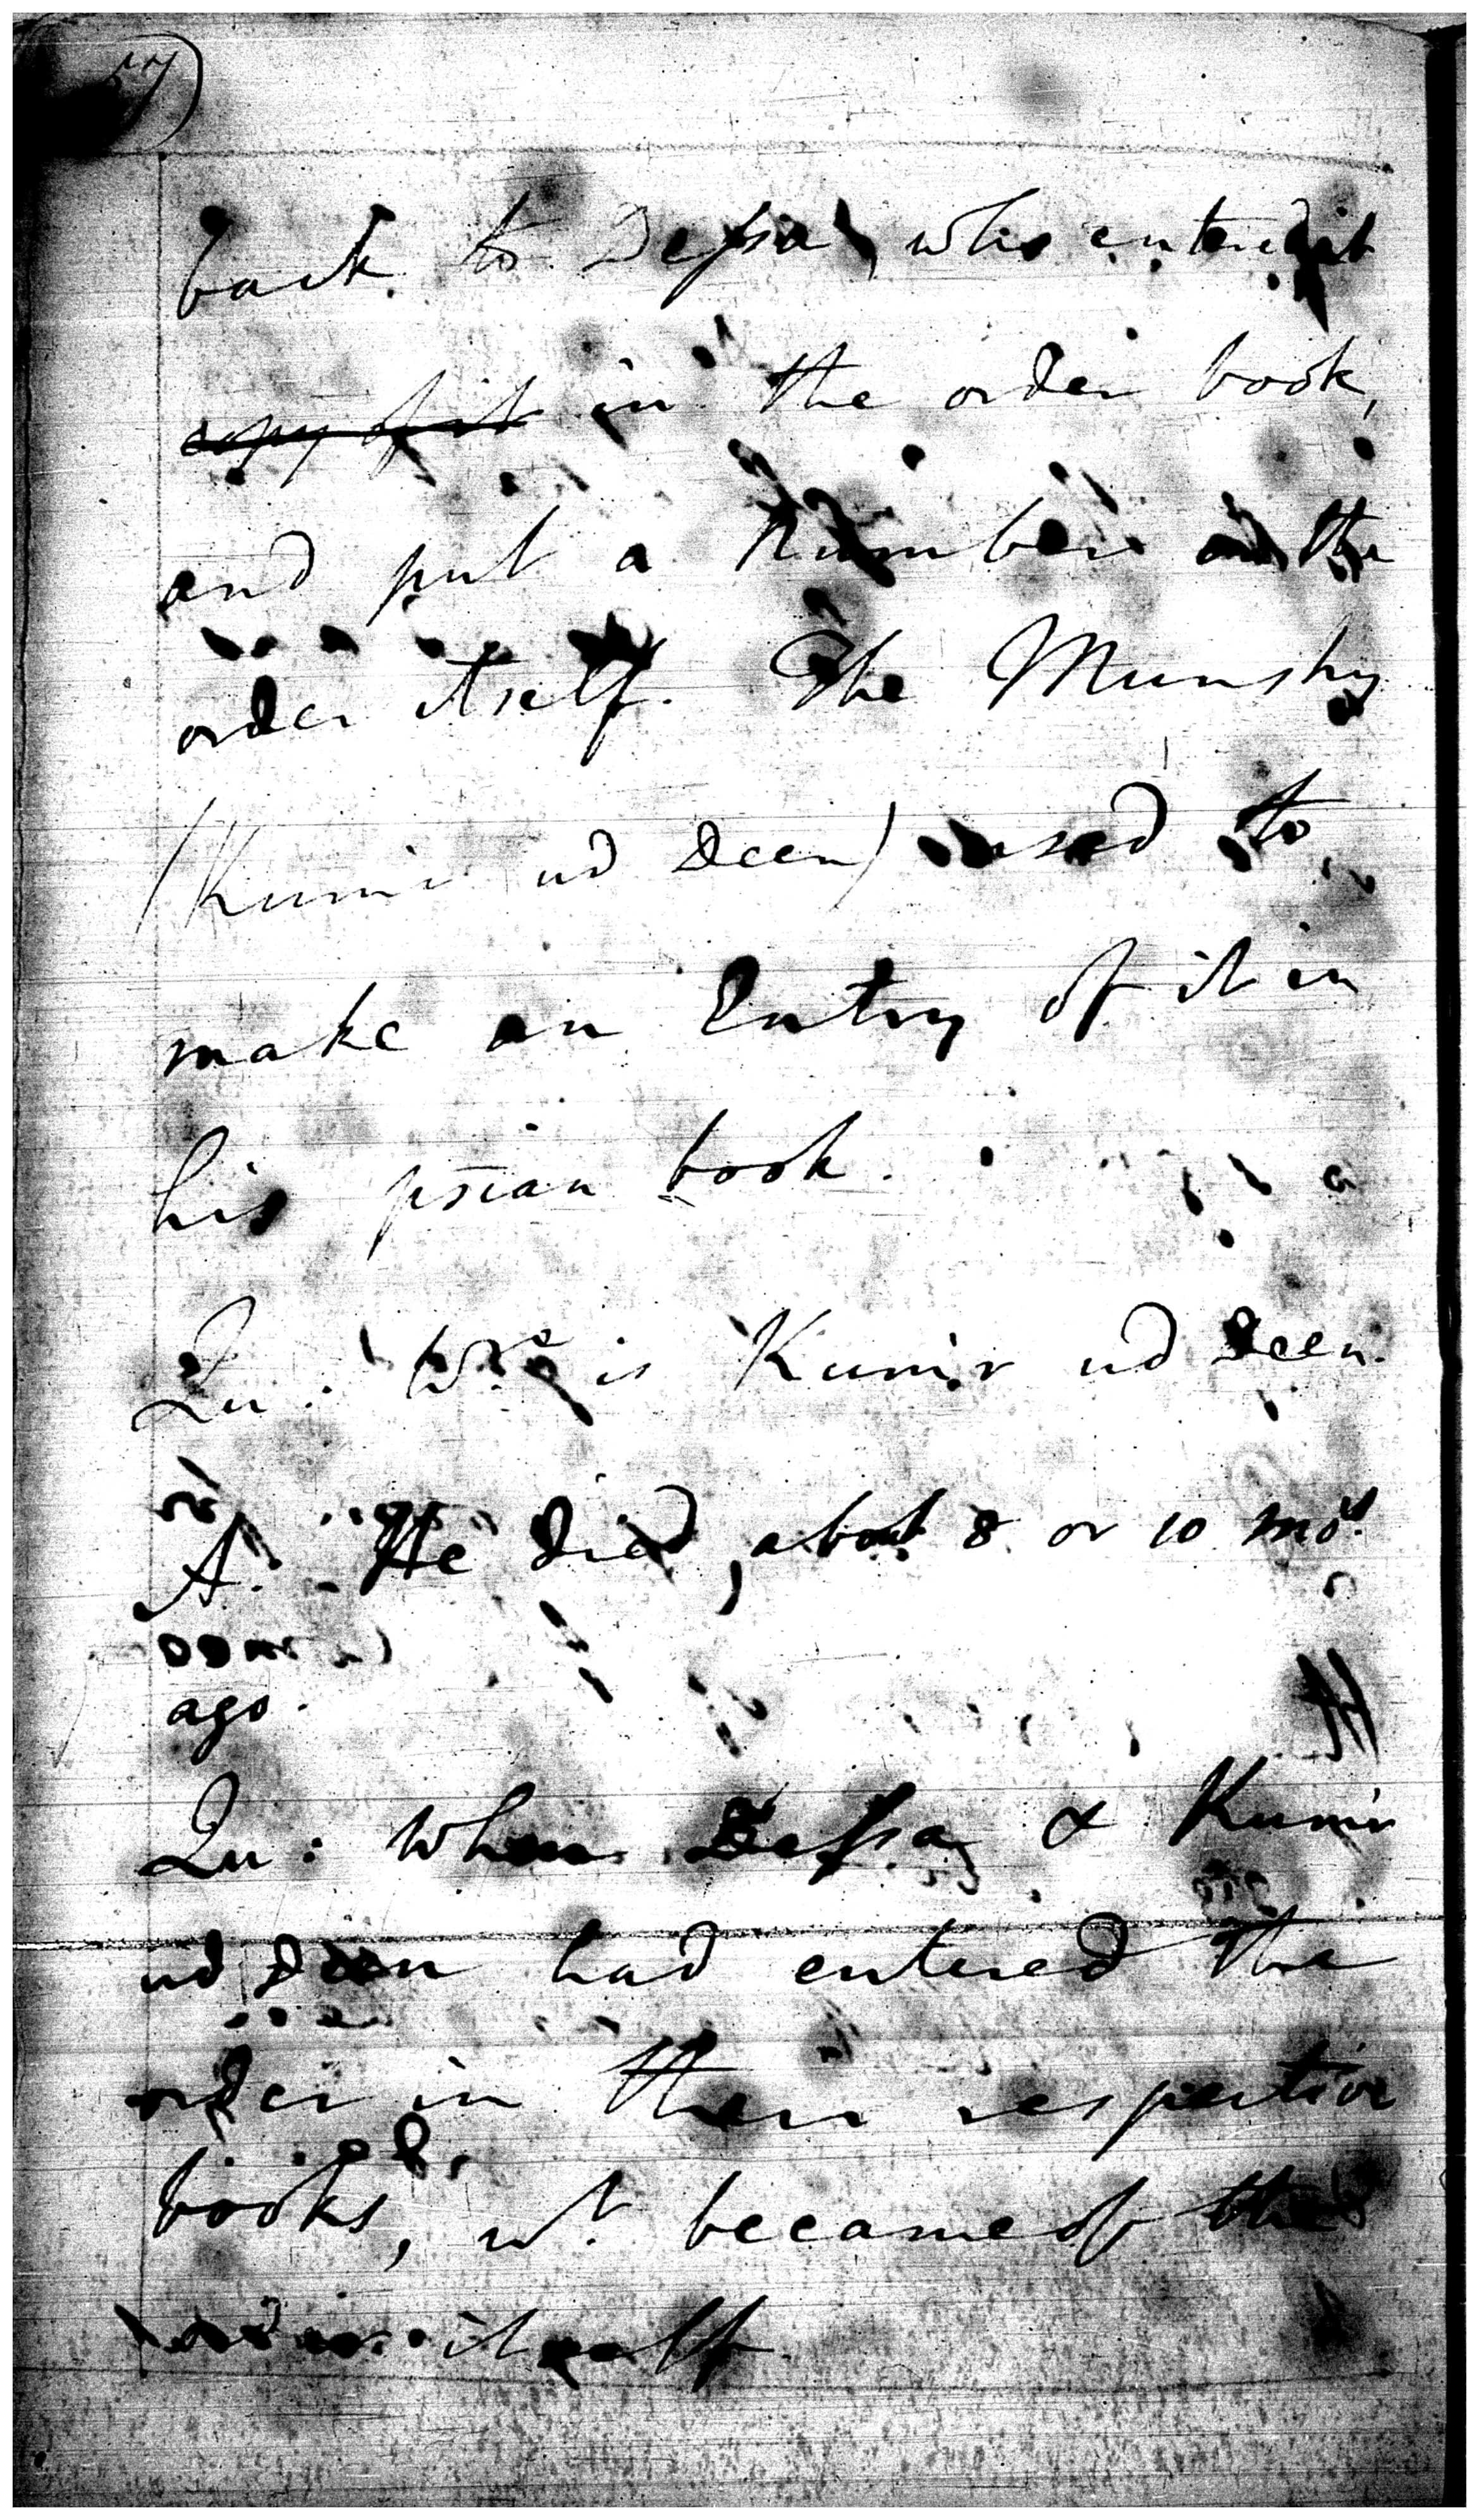 57)
back to Dessa, who entered it
copy of it in the order book,
and put a Number on the
order itself. The Munshy
(Kumir ud Deen) used to
make an Entry of it in
his psian book.
Qu: Wre is Kumir ud Deen.
A. He died, about 8 or 10 mos.
ago.
Qu: When Dessa & Kumir
ud Deen had entered the
order in their respective
books, wt. became of the
order itself.